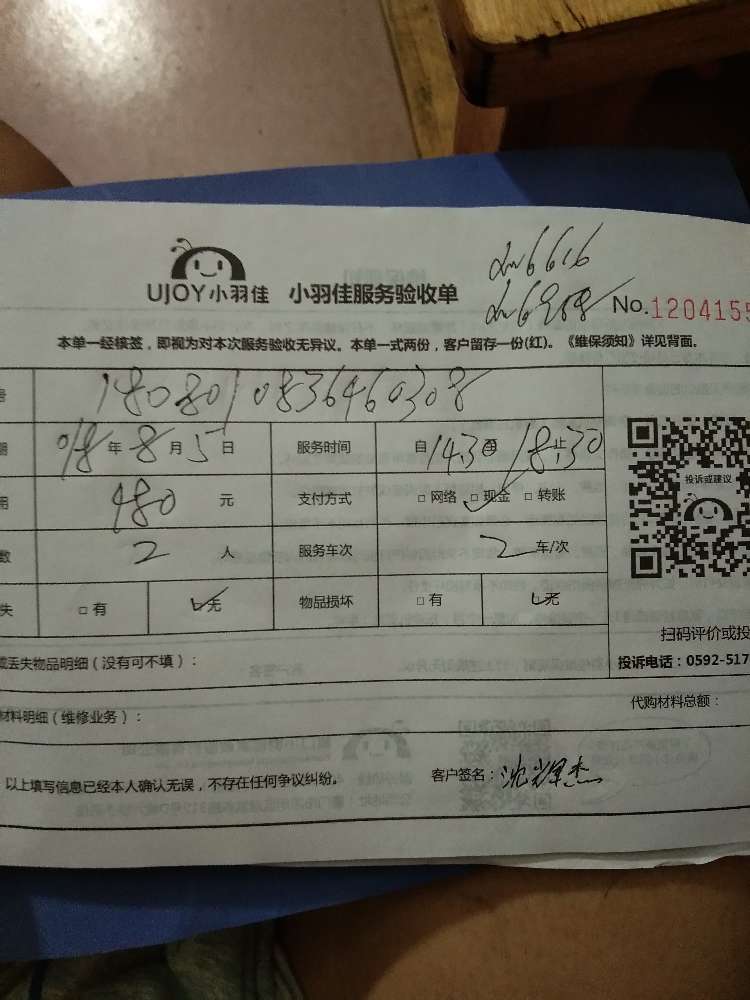 UJOY小羽佳 小羽佳服务验收单
No.1204155
本单一经核签，即视为对本次服务验收无异议。本单一式两份，客户留存一份(红)。《维保须知》详见背面。
号 1808010836460308
期 018年8月5日 服务时间 自14:30至18:30止
用 480 元 支付方式 □网络 ☑现金 □转账
数 2 人 服务车次 2 车/次
失 □有 ☑无 物品损坏 □有 ☑无
投诉或建议
扫码评价或投
或丢失物品明细（没有可不填）：
投诉电话：0592-517
材料明细（维修业务）：
代购材料总额：
以上填写信息已经本人确认无误，不存在任何争议纠纷。
客户签名：沈辉杰